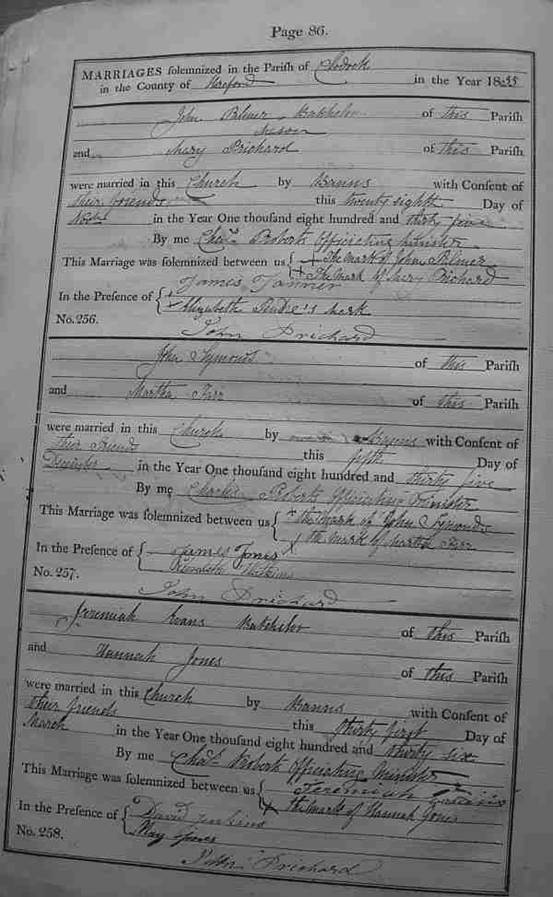 Page 86.
MARRIAGES solemnized in the Parish of Clodock
in the County of Hereford in the Year 1835
John Palmer Batchelor of this Parish
Mason
and Mary Prichard of this Parish
were married in this Church by Banns with Consent of
their friends this twenty eighth Day of
in the Year One thousand eight hundred and thirty five
By me Chas. Roberts Officiating Minister
This Marriage was solemnized between us { + The mark of John Palmer
+ The mark of Mary Prichard
In the Presence of { James Tanner
Elizabeth mark
No. 256. John Prichard
John Symonds of this Parish
and Martha of this Parish
were married in this Church by Banns with Consent of
their Friends this fifth Day of
December in the Year One thousand eight hundred and thirty five
By me Charles Roberts Officiating Minister
This Marriage was solemnized between us { + the mark of John Symonds
X the mark of Martha
In the Presence of { James Jones
Watkins
No. 257. John Prichard
Jeremiah Evans Batchelor of this Parish
and Hannah Jones of this Parish
were married in this Church by Banns with Consent of
their friends this thirty first Day of
March in the Year One thousand eight hundred and thirty six
By me Chas. Roberts Officiating Minister
This Marriage was solemnized between us { Jeremiah
X the mark of Hannah Jones
In the Presence of { David Jenkins
May
No. 258. John Prichard